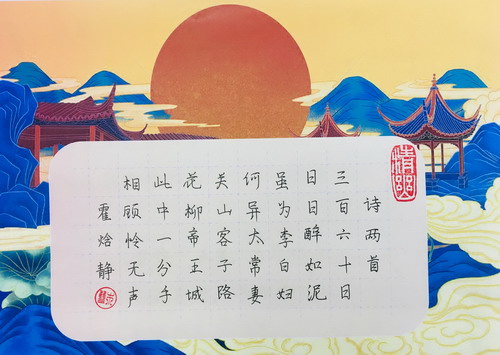 诗两首
三百六十日
日日醉如泥
虽为李白妇
何异太常妻
关山客子路
花柳帝王城
此中一分手
相顾怜无声
霍 静